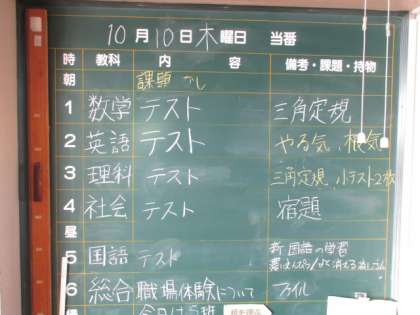 10月10日木曜日 当番
時 教科 内容 備考・課題・持物
朝 課題 なし
1 数学 テスト 三角定規
2 英語 テスト やる気、根気
3 理科 テスト 三角定規、小テスト2枚
4 社会 テスト 宿題
昼
5 国語 テスト 新国語の学習
消える消しゴム
6 総合 職場体験について ファイル
今日は5班